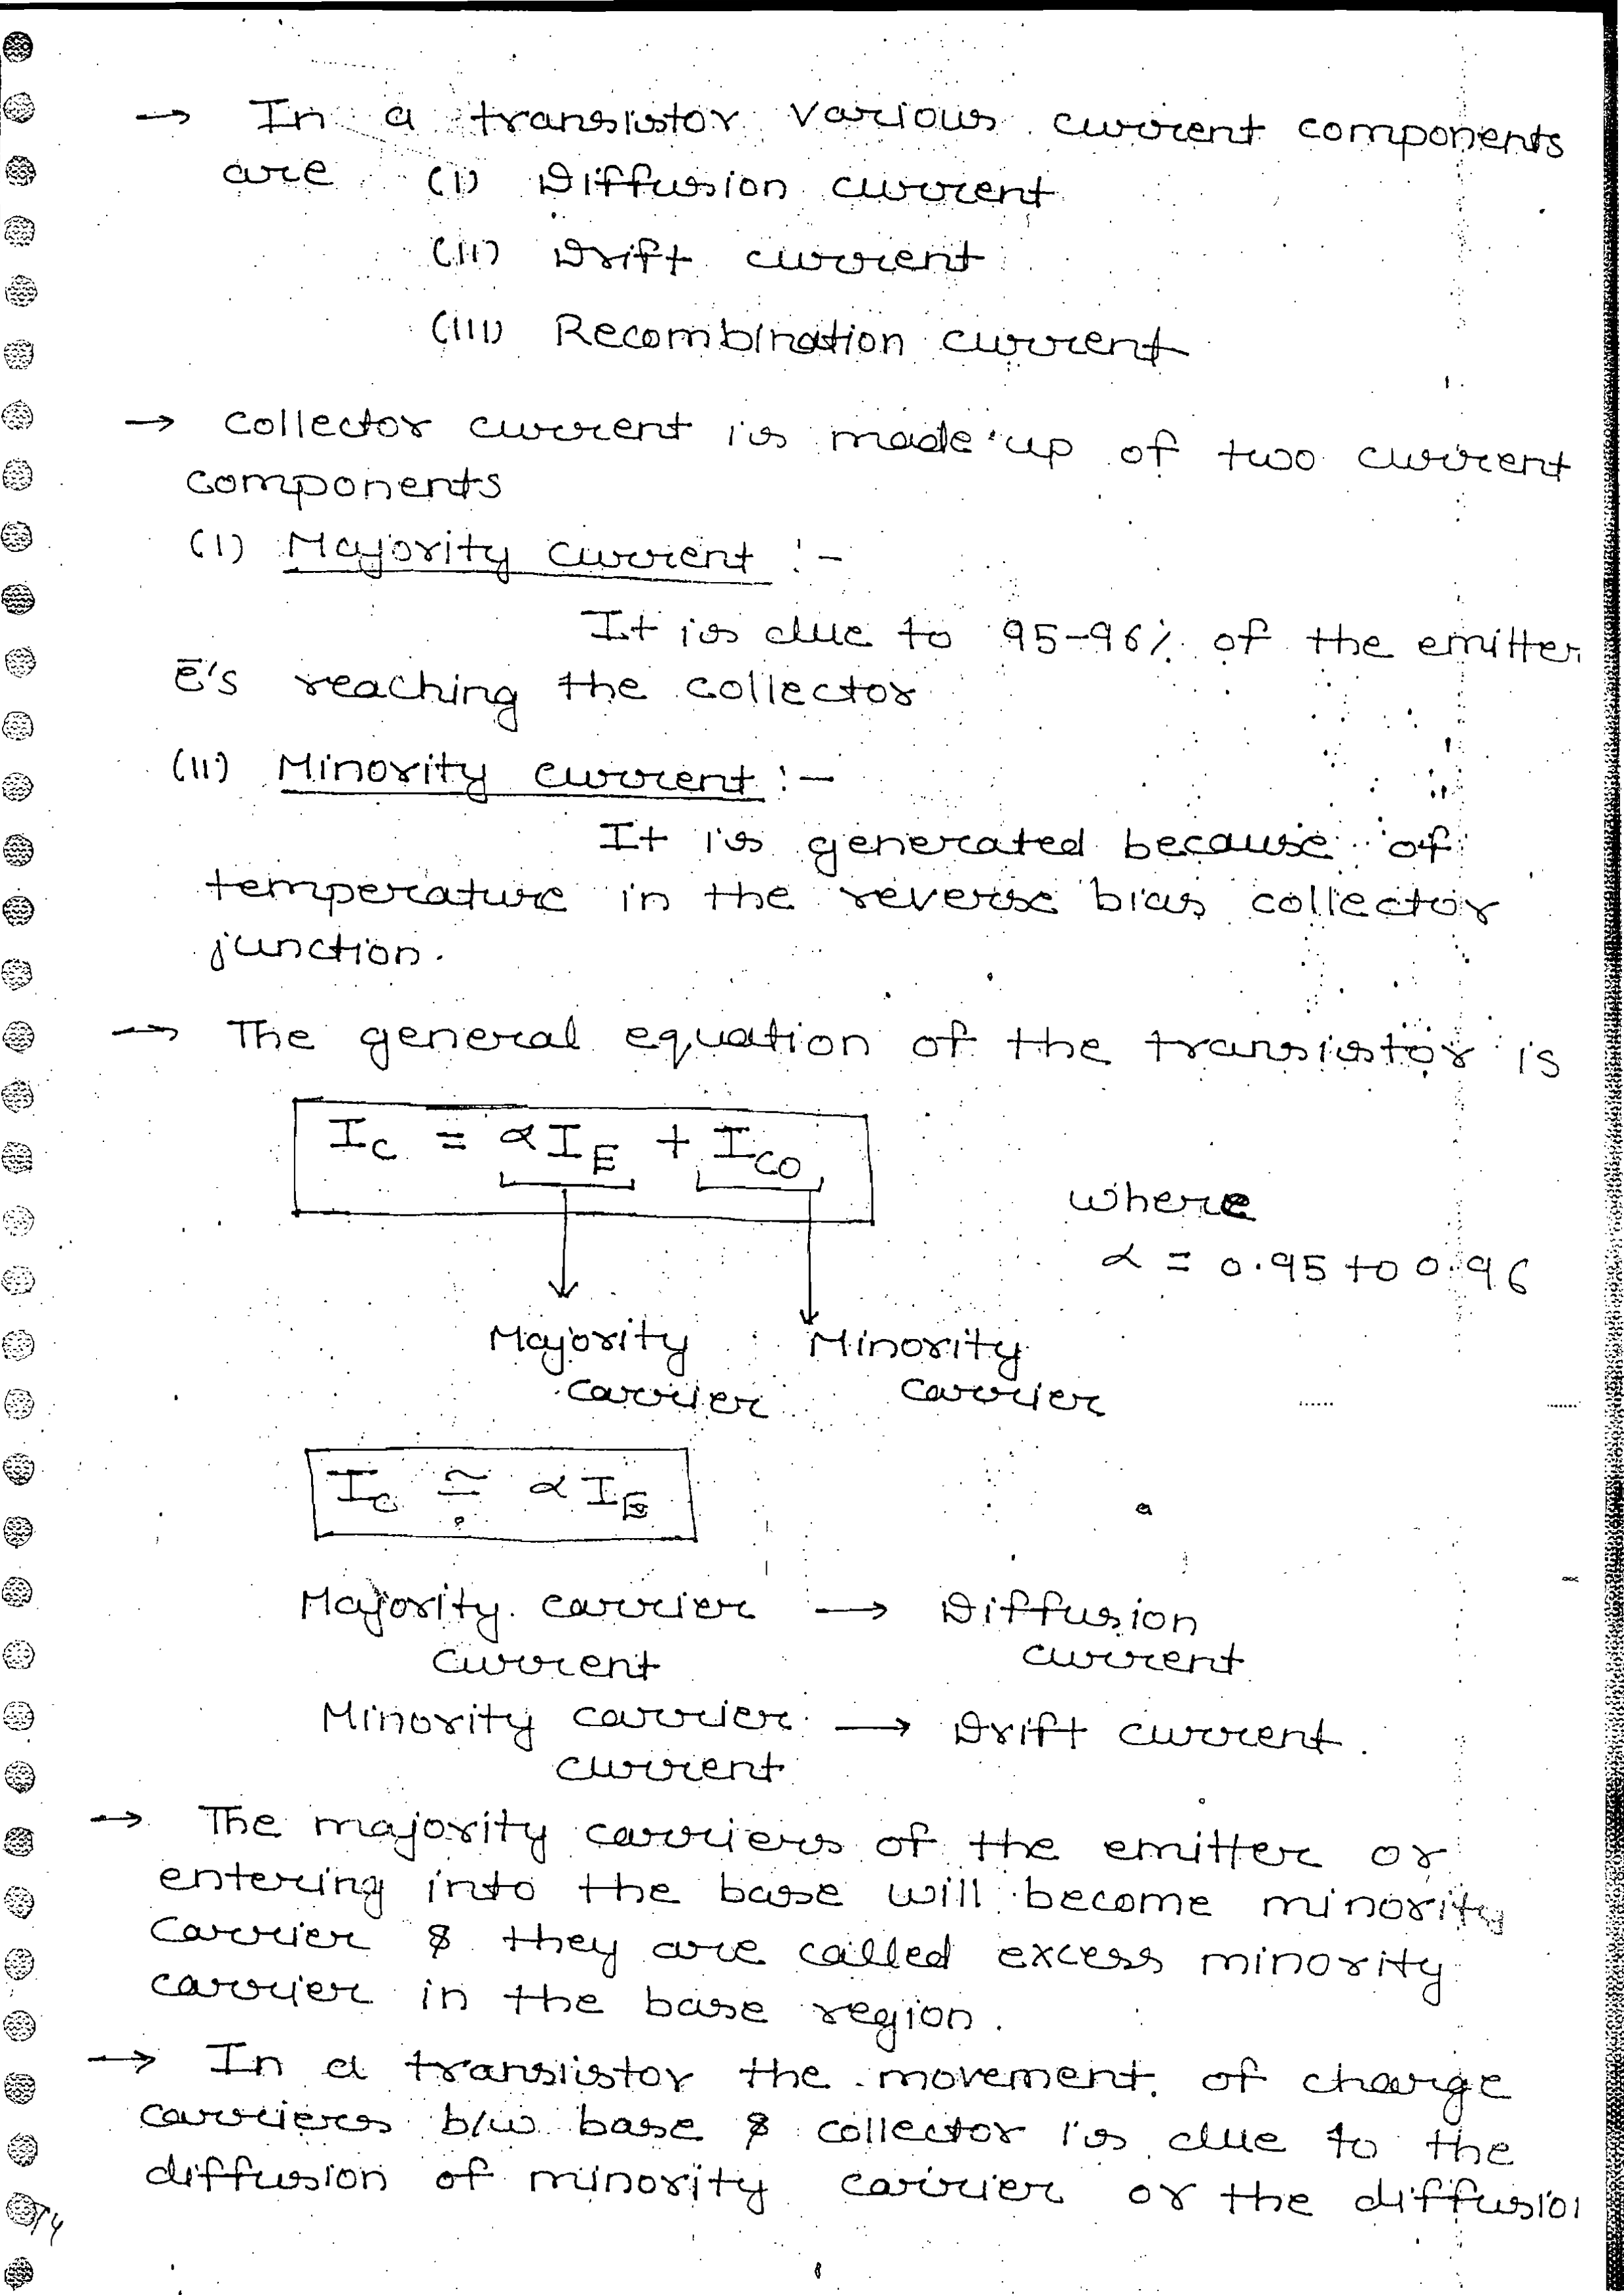 → In a transistor various current components
are (i) Diffusion current
(ii) Drift current
(iii) Recombination current
→ Collector current is made up of two current
components
(i) Majority current :-
It is due to 95-96% of the emitter
ē's reaching the collector
(ii) Minority current :-
It is generated because of
temperature in the reverse bias collector
junction.
→ The general equation of the transistor is
I_C = αI_E + I_CO
where
α = 0.95 to 0.96
Majority Minority
carrier carrier
I_C ≅ αI_E
Majority carrier → Diffusion
current current
Minority carrier → Drift current.
current
→ The majority carriers of the emitter or
entering into the base will become minority
carrier & they are called excess minority
carrier in the base region.
→ In a transistor the movement of charge
carriers b/w base & collector is due to the
diffusion of minority carrier or the diffusion